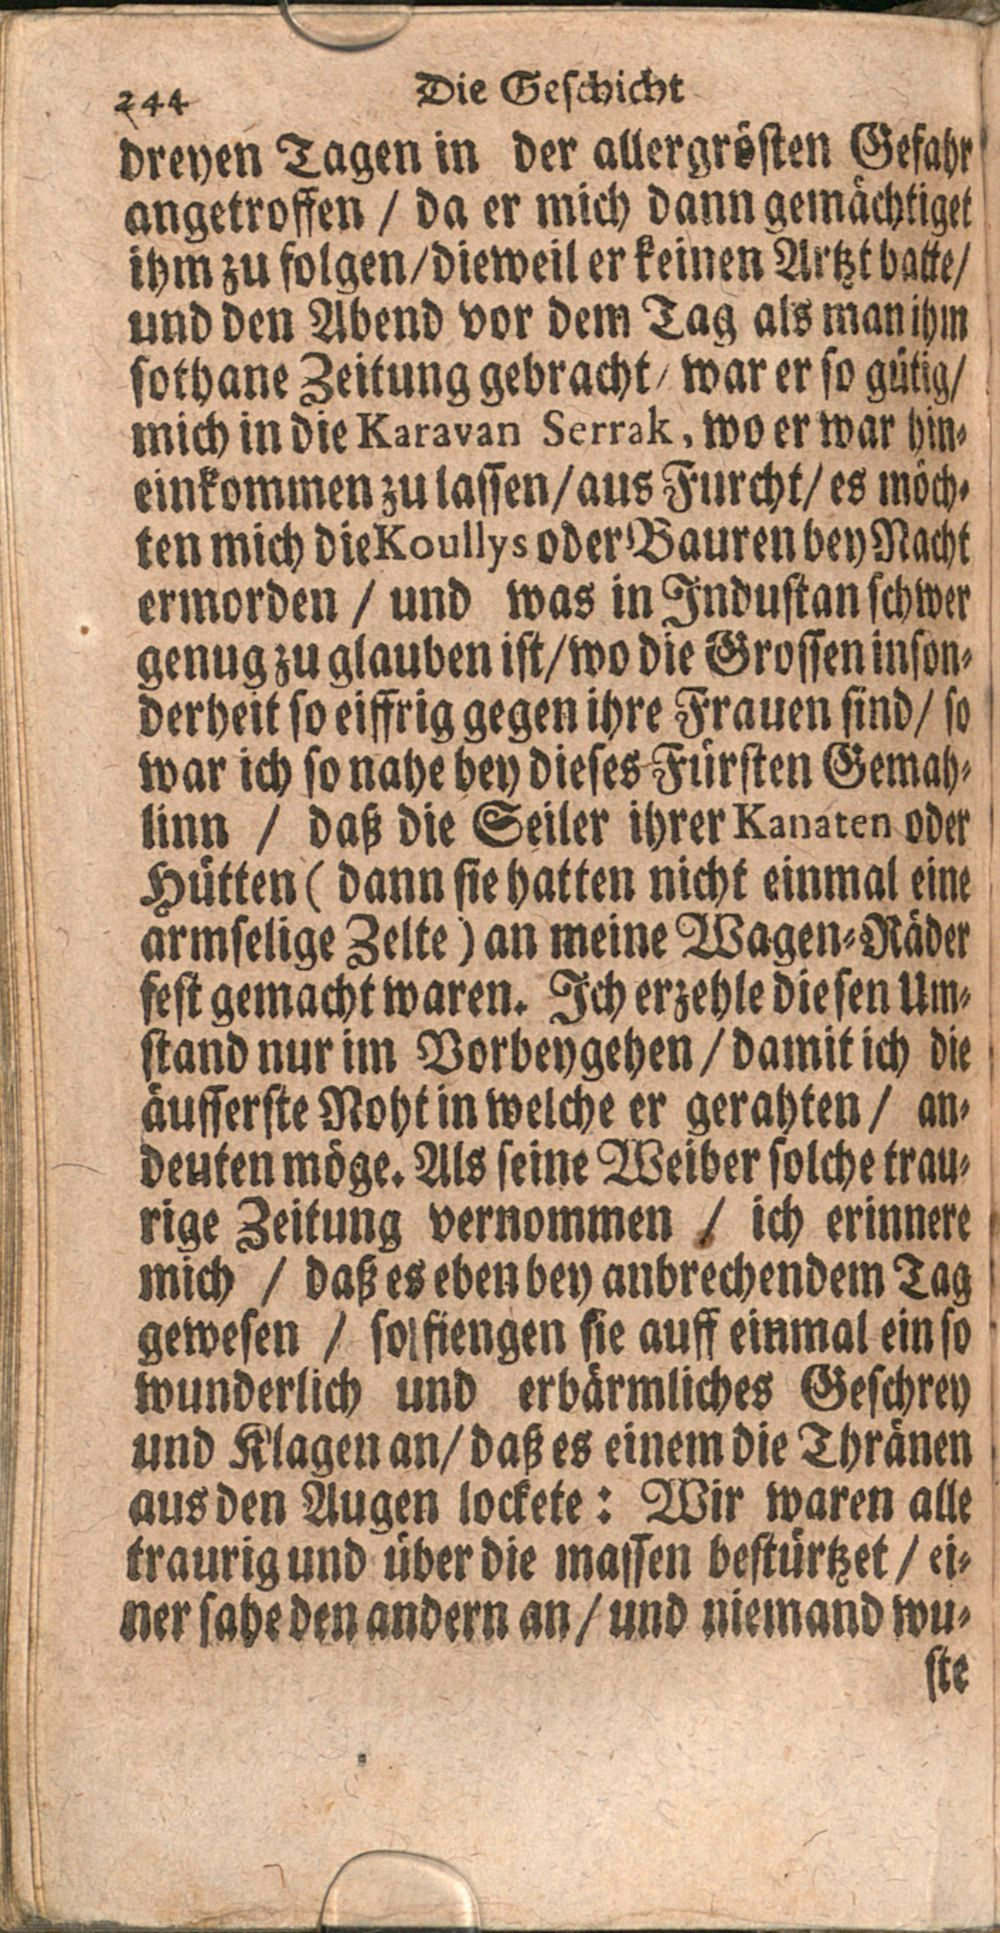 244 Die Geschicht
dreyen Tagen in der allergrösten Gefahr
angetroffen / da er mich dann gemächtiget
ihm zu folgen / dieweil er keinen Artzt hatte /
und den Abend vor dem Tag als man ihm
sothane Zeitung gebracht / war er so gütig /
mich in die Karavan Serrak, wo er war hin-
einkommen zu lassen / aus Furcht / es möch-
ten mich die Koullys oder Bauren bey Nacht
ermorden / und was in Industan schwer
genug zu glauben ist / wo die Grossen inson-
derheit so eiffrig gegen ihre Frauen sind / so
war ich so nahe bey dieses Fürsten Gemah-
linn / daß die Seiler ihrer Kanaten oder
Hütten ( dann sie hatten nicht einmal eine
armselige Zelte ) an meine Wagen-Räder
fest gemacht waren. Ich erzehle diesen Um-
stand nur im Vorbeygehen / damit ich die
äusserste Noht in welche er gerahten / an-
deuten möge. Als seine Weiber solche trau-
rige Zeitung vernommen / ich erinnere
mich / daß es eben bey anbrechendem Tag
gewesen / so fiengen sie auff einmal ein so
wunderlich und erbärmliches Geschrey
und Klagen an / daß es einem die Thränen
aus den Augen lockete : Wir waren alle
traurig und über die massen bestürtzet / ei-
ner sahe den andern an / und niemand wu-
ste